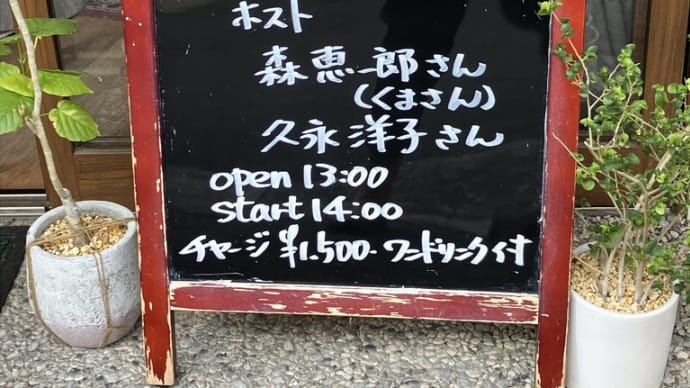 ホスト
森恵一郎さん
(くまさん)
久永洋子さん
open 13:00
start 14:00
チャージ ¥1,500- ワンドリンク付